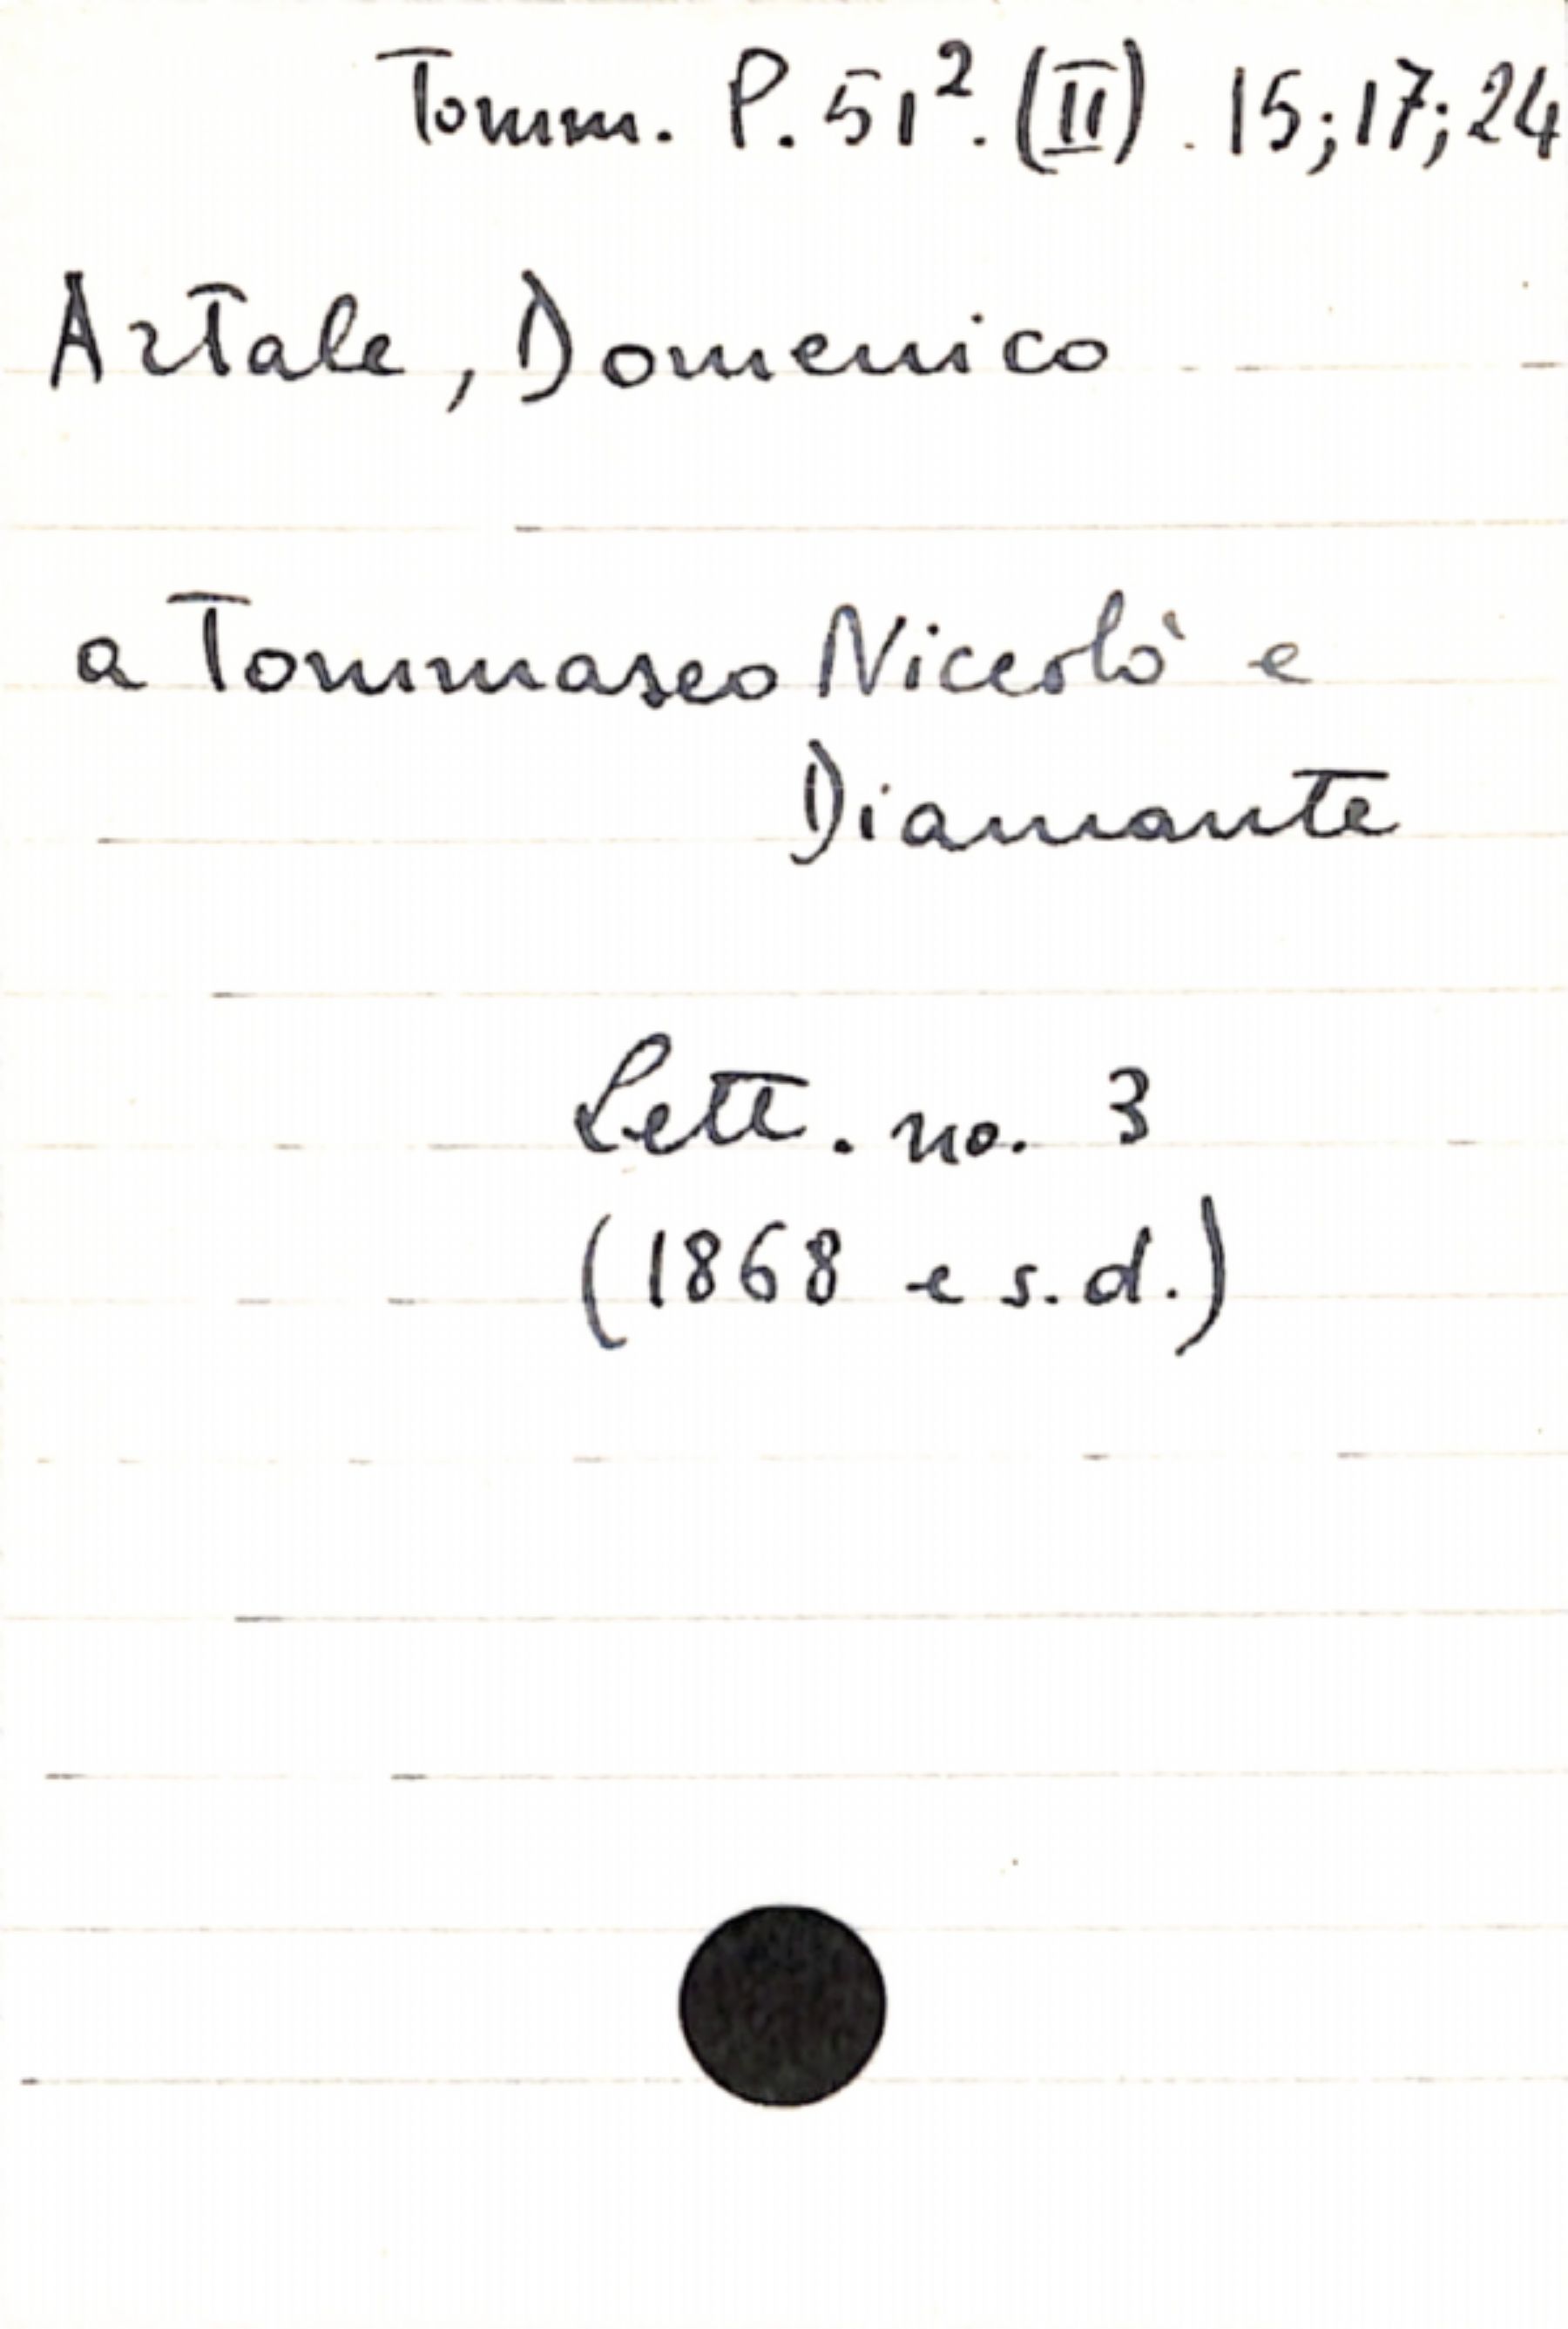 Tomm. P. 51². (II). 15; 17; 24
Artale, Domenico
a Tommaseo Niccolò e
Diamante
Lett. no. 3
(1868 e s.d.)